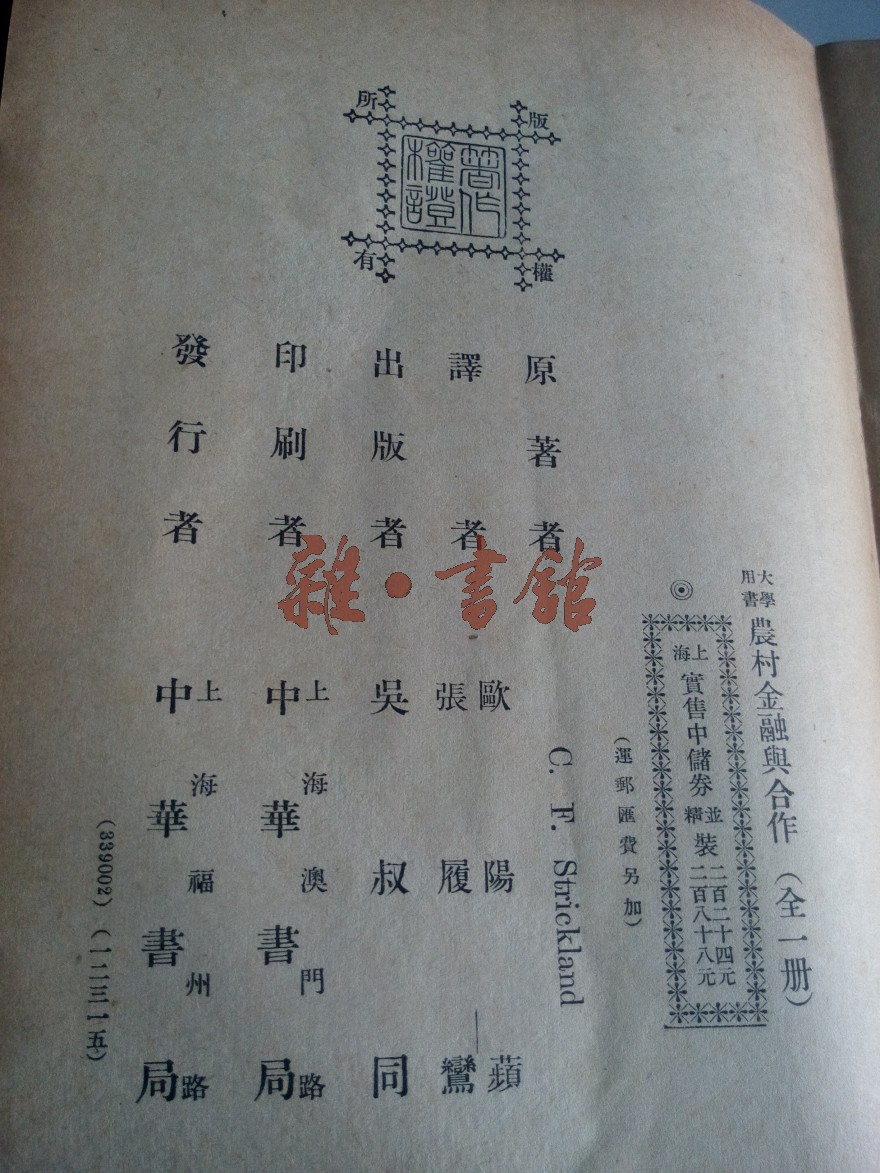 版權所有
著作權證
大學用書 農村金融與合作（全一册）
◎
上海實售中儲券 並裝二百二十四元 精裝二百八十八元
（運郵匯費另加）
原著者 C. F. Strickland
譯者 歐陽蘋 張履鸞
出版者 吳叔同
印刷者 上海澳門路 中華書局
發行者 上海福州路 中華書局
（339002）（一二三一五）
雜·書館